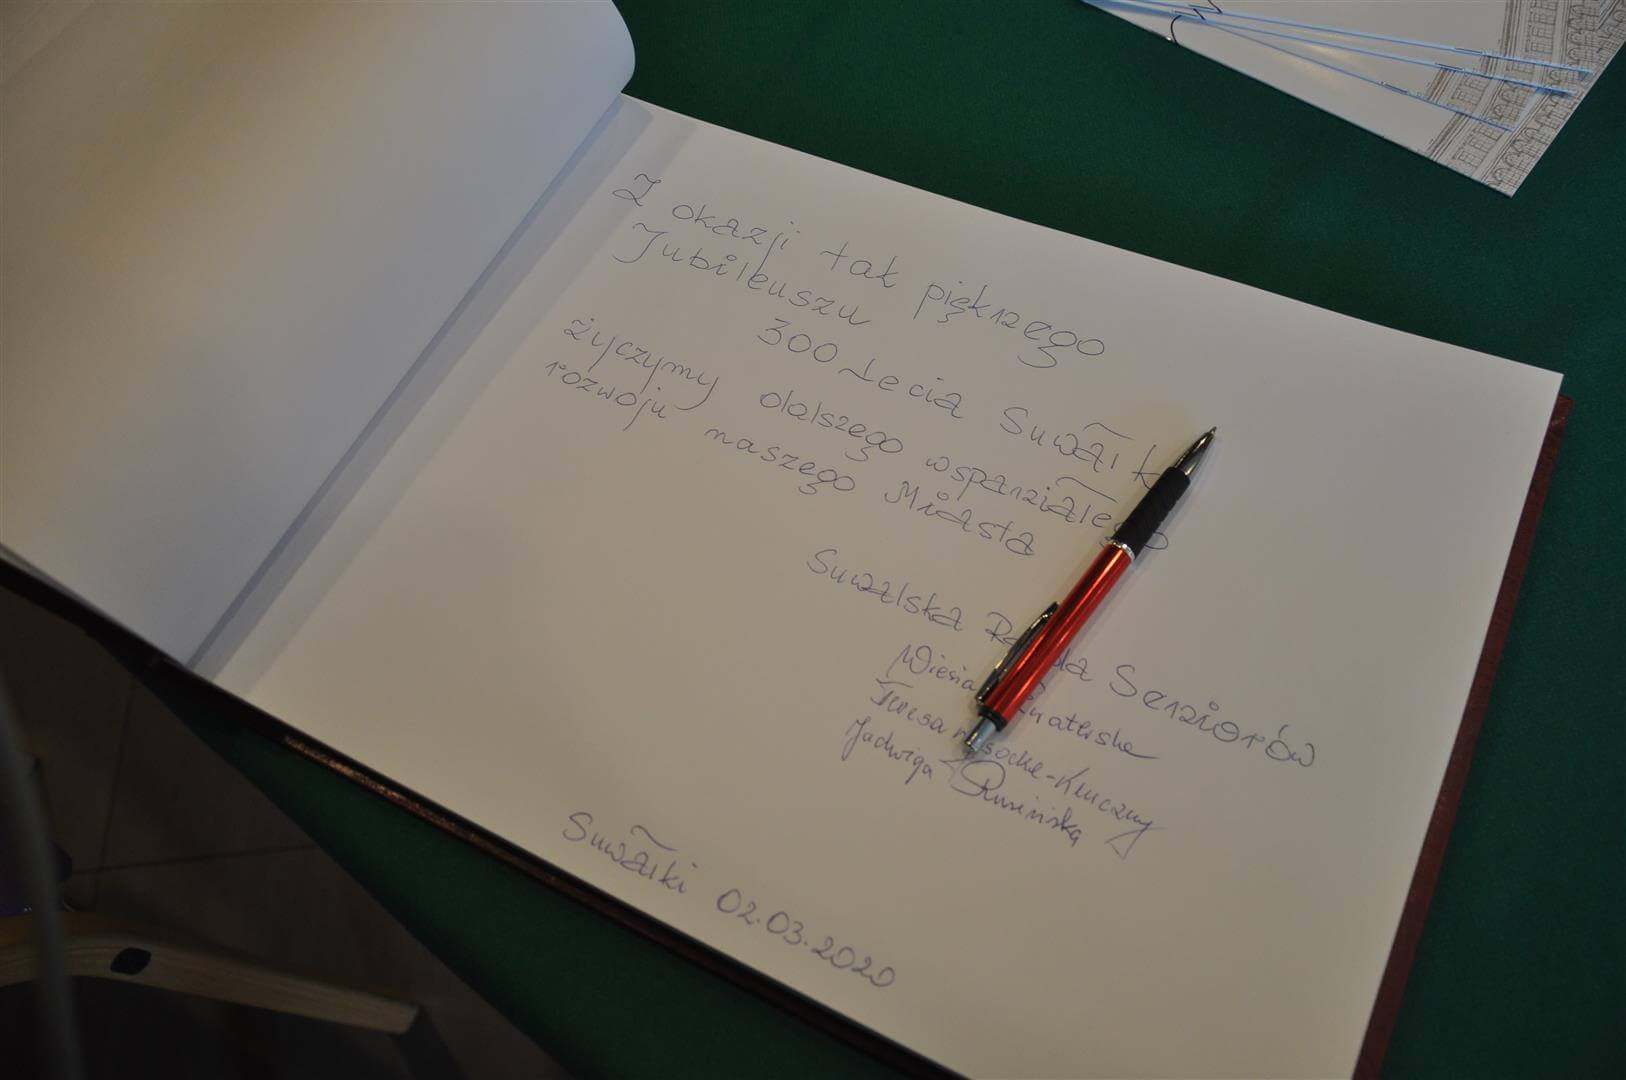 Z okazji tak pięknego
Jubileuszu
300 Lecia Suwałk
życzymy dalszego wspaniałego
rozwoju naszego Miasta
Suwalska Rada Seniorów
Teresa
Jadwiga Rusińska
Suwałki 02.03.2020